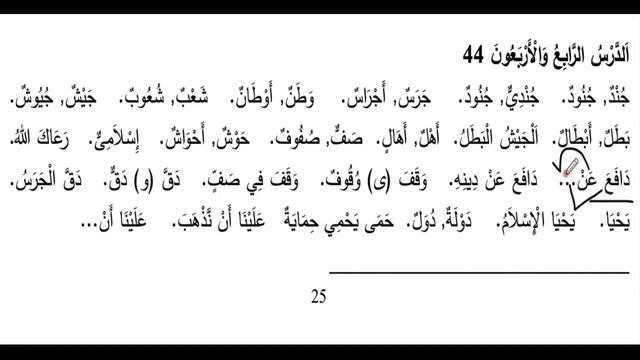 اَلدَّرْسُ الرَّابِعُ وَالْأَرْبَعُونَ 44
جُنْدٌ, جُنُودٌ. جُنْدِيٌّ, جُنُودٌ. جَرَسٌ, أَجْرَاسٌ. وَطَنٌ, أَوْطَانٌ. شَعْبٌ, شُعُوبٌ. جَيْشٌ, جُيُوشٌ.
بَطَلٌ, أَبْطَالٌ. اَلْجَيْشُ الْبَطَلُ. أَهْلٌ, أَهَالٍ. صَفٌّ, صُفُوفٌ. حَوْشٌ, أَحْوَاشٌ. إِسْلَامِيٌّ. رَعَاكَ اللهُ.
دَافَعَ عَنْ... دَافَعَ عَنْ دِينِهِ. وَقَفَ (ى) وُقُوفٌ. وَقَفَ فِي صَفٍّ. دَقَّ (و) دَقٌّ. دَقَّ الْجَرَسُ.
يَحْيَا. يَحْيَا الْإِسْلَامُ. دَوْلَةٌ, دُوَلٌ. حَمَى يَحْمِي حِمَايَةٌ عَلَيْنَا أَنْ نَذْهَبَ. عَلَيْنَا أَنْ...
25